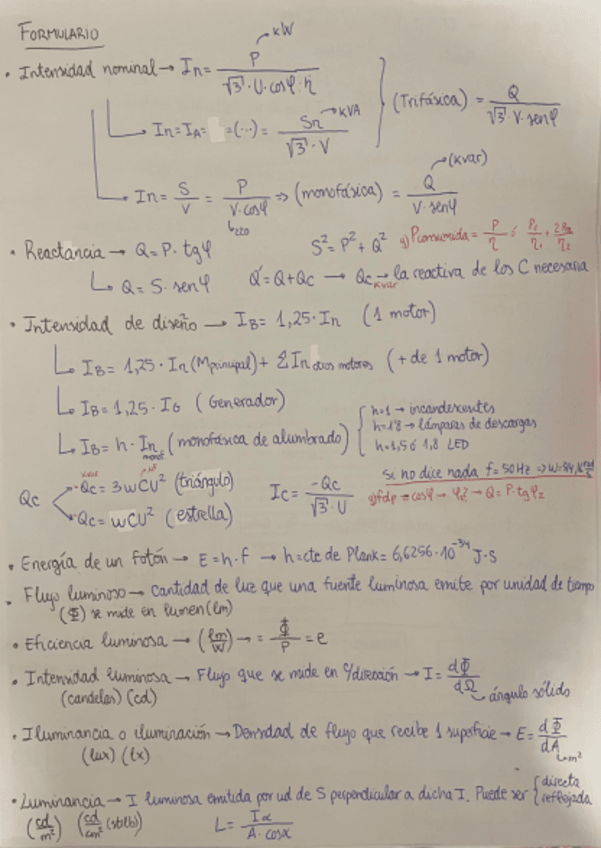 FORMULARIO
• Intensidad nominal → In = P → kW / √3 · U · cosφ · η
} (Trifásica) = Q / √3 · V · senφ
→ In = IA = = (...) = Sn → kVA / √3 · V
→ In = S / V = P / V · cosφ ⇒ (monofásica) = Q → (kvar) / V · senφ
• Reactancia → Q = P · tgφ S² = P² + Q² Pconsumida = P / η ó
→ Q = S · senφ Q' = Q + Qc → Qc → la reactiva de los C necesaria
kvar
• Intensidad de diseño → IB = 1,25 · In (1 motor)
→ IB = 1,25 · In (Mprincipal) + ΣIn otros motores (+ de 1 motor)
→ IB = 1,25 · IG (Generador)
→ IB = h · In monof (monofásica de alumbrado)
h=1 → incandescentes
h=1'8 → lámparas de descargas
h=1,5 ó 1,8 LED
Qc
Qc = 3wCU² (triángulo)
Qc = wCU² (estrella)
Ic = -Qc / √3 · U
Si no dice nada f = 50Hz ⇒
fdp = cosφ → φ2 → Q = P · tgφ2
• Energía de un fotón → E = h · f → h = cte de Plank = 6,6256 · 10^-34 J·s
• Flujo luminoso → Cantidad de luz que una fuente luminosa emite por unidad de tiempo
(Φ) se mide en lumen (lm)
• Eficiencia luminosa → (lm/W) → = Φ / P = e
• Intensidad luminosa → Flujo que se mide en c/dirección → I = dΦ / dΩ → ángulo sólido
(candelas) (cd)
• Iluminancia o iluminación → Densidad de flujo que recibe 1 superficie → E = dΦ / dA → m²
(lux) (lx)
• Luminancia → I luminosa emitida por ud de S perpendicular a dicha I. Puede ser { directa
reflejada
(cd/m²) (cd/cm² (stilb)) L = Iα / A · cosα